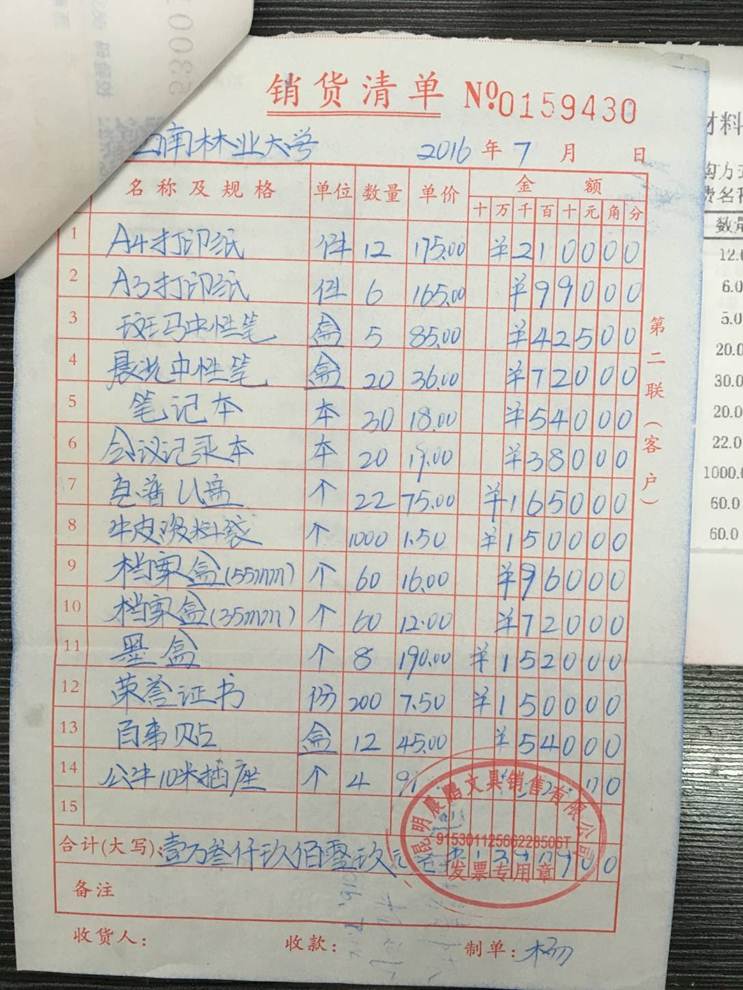 销货清单 №0159430
南林业大学 2016年7月 日
名称及规格 单位 数量 单价 金额
十万千百十元角分
1 A4打印纸 件 12 175.00 ¥210000
2 A3打印纸 件 6 165.00 ¥99000
3 斑马中性笔 盒 5 85.00 ¥42500
4 晨光中性笔 盒 20 36.00 ¥72000
5 笔记本 本 30 18.00 ¥54000
6 会议记录本 本 20 19.00 ¥38000
7 U盘 个 22 75.00 ¥165000
8 牛皮资料袋 个 1000 1.50 ¥150000
9 档案盒(55mm) 个 60 16.00 ¥96000
10 档案盒(35mm) 个 60 12.00 ¥72000
11 墨盒 个 8 190.00 ¥152000
12 荣誉证书 份 200 7.50 ¥150000
13 百事贴 盒 12 45.00 ¥54000
14 公牛10米插座 个 4
15
合计(大写): 壹万叁仟玖佰零玖元
备注
收货人: 收款: 制单: 杨
第二联(客户)
昆明晨鹏文具销售有限公司
发票专用章
材料
购方
费名称
数量
12.0
6.0
5.0
20.0
30.0
20.0
22.0
1000.0
60.0
60.0